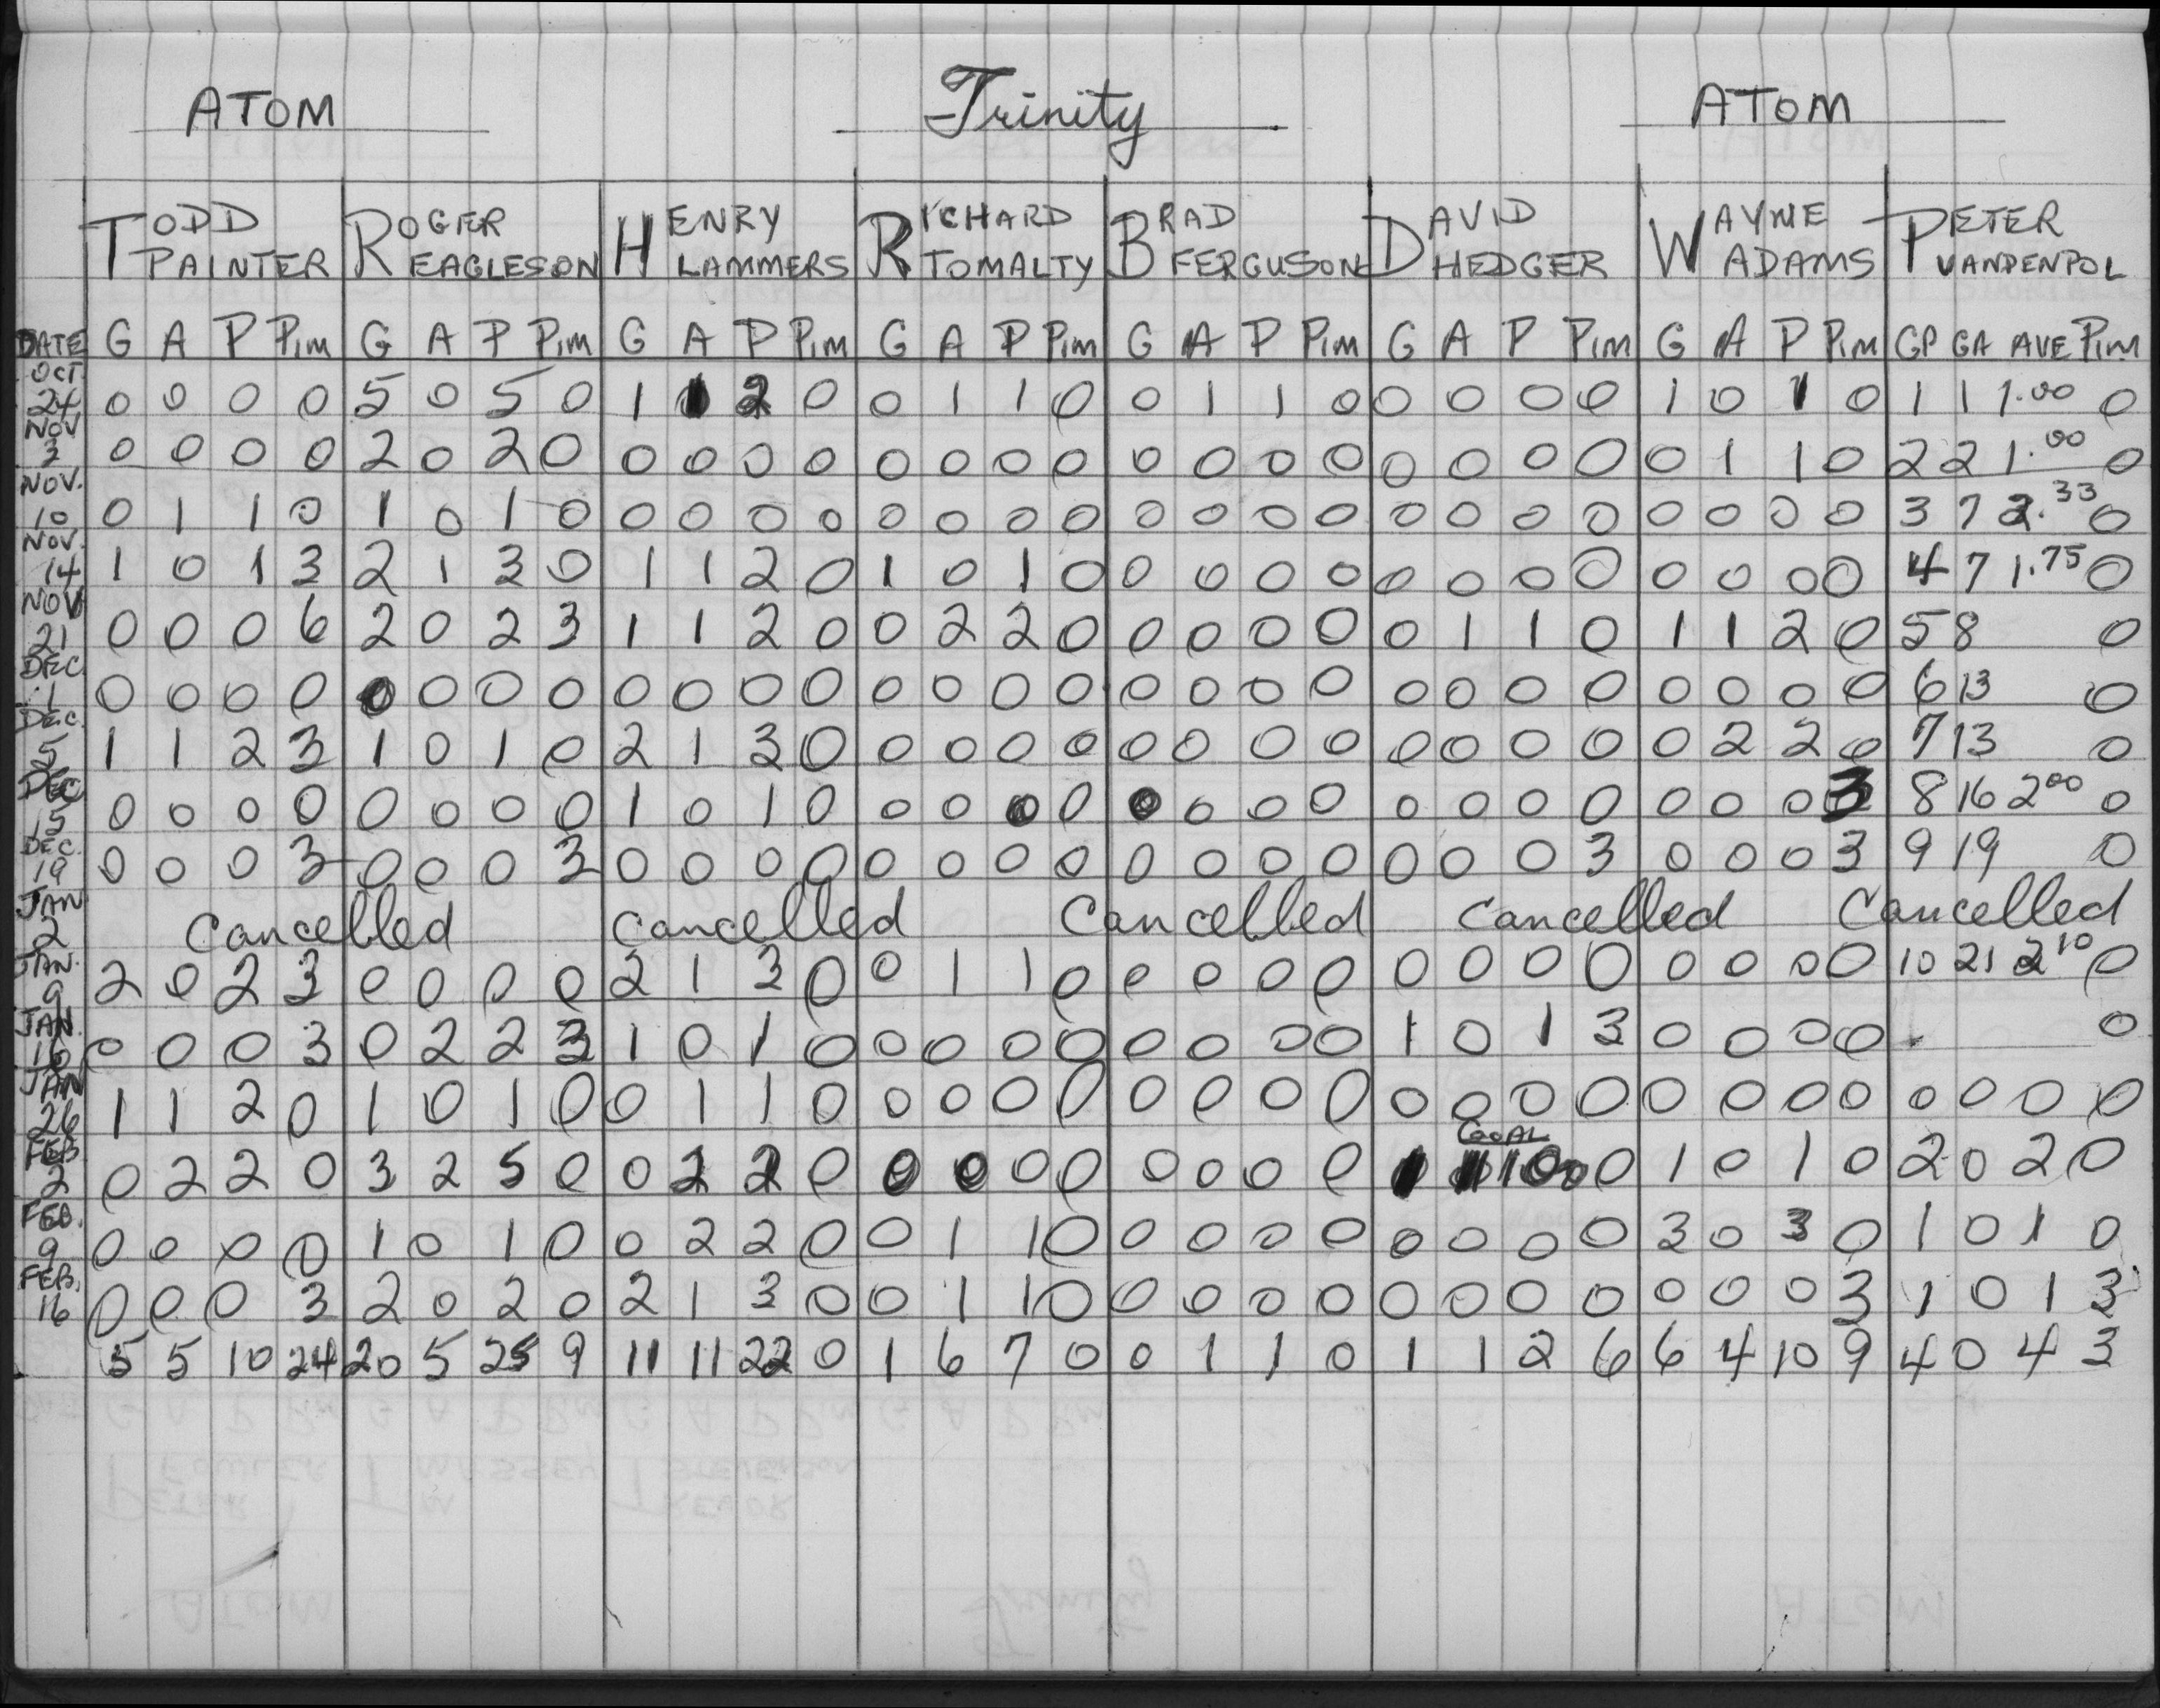 ATOM Trinity ATOM
TODD PAINTER ROGER EAGLESON HENRY LAMMERS RICHARD TOMALTY BRAD FERGUSON DAVID HEDGER WAYNE ADAMS PETER VANDENPOL
DATE G A P Pim G A P Pim G A P Pim G A P Pim G A P Pim G A P Pim G A P Pim GP GA AVE Pim
OCT. 24 0 0 0 0 5 0 5 0 1 1 2 0 0 1 1 0 0 1 1 0 0 0 0 0 1 0 1 0 1 1 1.00 0
NOV 3 0 0 0 0 2 0 2 0 0 0 0 0 0 0 0 0 0 0 0 0 0 0 0 0 0 1 1 0 2 2 1.00 0
NOV. 10 0 1 1 0 1 0 1 0 0 0 0 0 0 0 0 0 0 0 0 0 0 0 0 0 0 0 0 0 3 7 2.33 0
NOV. 14 1 0 1 3 2 1 3 0 1 1 2 0 1 0 1 0 0 0 0 0 0 0 0 0 0 0 0 0 4 7 1.75 0
NOV 21 0 0 0 6 2 0 2 3 1 1 2 0 0 2 2 0 0 0 0 0 0 1 1 0 1 1 2 0 5 8 0
DEC. 1 0 0 0 0 0 0 0 0 0 0 0 0 0 0 0 0 0 0 0 0 0 0 0 0 0 0 0 0 6 13 0
DEC. 5 1 1 2 3 1 0 1 0 2 1 3 0 0 0 0 0 0 0 0 0 0 0 0 0 0 2 2 0 7 13 0
DEC 15 0 0 0 0 0 0 0 0 1 0 1 0 0 0 0 0 0 0 0 0 0 0 0 0 0 0 0 3 8 16 2 00 0
DEC. 19 0 0 0 3 0 0 0 3 0 0 0 0 0 0 0 0 0 0 0 0 0 0 0 3 0 0 0 3 9 19 0
JAN 2 Cancelled Cancelled Cancelled Cancelled Cancelled
JAN. 9 2 0 2 3 0 0 0 0 2 1 3 0 0 1 1 0 0 0 0 0 0 0 0 0 0 0 0 0 10 21 2 10 0
JAN. 16 0 0 0 3 0 2 2 3 1 0 1 0 0 0 0 0 0 0 0 0 1 0 1 3 0 0 0 0 0
JAN 26 1 1 2 0 1 0 1 0 0 1 1 0 0 0 0 0 0 0 0 0 0 0 0 0 0 0 0 0 0 0 0 0
GOAL
FEB 2 0 2 2 0 3 2 5 0 0 2 2 0 0 0 0 0 0 0 0 0 0 1 0 1 0 2 0 2 0
FEB. 9 0 0 0 0 1 0 1 0 0 2 2 0 0 1 1 0 0 0 0 0 0 0 0 0 3 0 3 0 1 0 1 0
FEB. 16 0 0 0 3 2 0 2 0 2 1 3 0 0 1 1 0 0 0 0 0 0 0 0 0 0 0 0 3 1 0 1 3
5 5 10 24 20 5 25 9 11 11 22 0 1 6 7 0 0 1 1 0 1 1 2 6 6 4 10 9 4 0 4 3